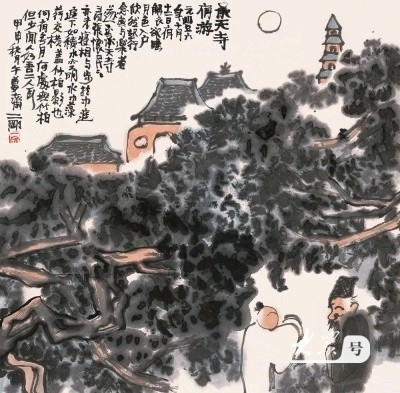 承天寺
夜游
元丰六
年十月
十二日夜
解衣欲睡
月色入户
欣然起行
念無與樂者
遂至承天寺
尋張懷民懷民
亦未寢相與步於中庭
庭下如積水空明水中藻
荇交横盖竹柏影也
何夜無月何處無竹柏
但少闲人如吾二人耳
甲申秋月
号